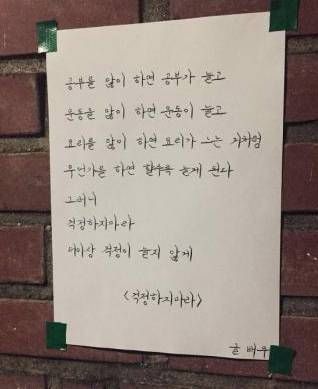 공부를 많이 하면 공부가 늘고
운동을 많이 하면 운동이 늘고
요리를 많이 하면 요리가 느는 것처럼
무언가를 하면 할수록 늘게 된다
그러니
걱정하지마라
더이상 걱정이 늘지 않게
<걱정하지마라>
글 배우